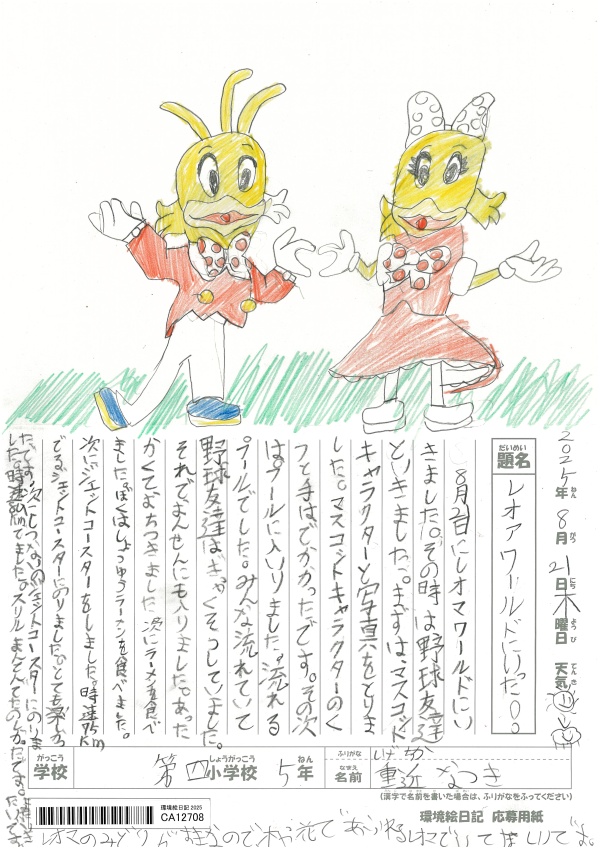 2025年8月21日木曜日 天気
ねん がつ にち ようび てんき
だいめい
題名 レオアワールドにいった。
8月2日にレオマワールドにい
きました。その時は野球友達
といきました。まずは、マスコット
キャラクターと写真をとりま
した。マスコットキャラクターのく
つと手はでかかったです。その次
はプールに入いりました。流れる
プールでした。みんな流れていて
野球友達はぎゃくそうしていました。
それでおんせんにも入りました。あった
かくておちつきました。次にラーメンを食べ
ました。ぼくはしょうゆうラーメンを食べました。
次にジェットコースターをしました。時速75km
でるジェットコースターにのりました。とても楽しかっ
たです。次にしつないのジェットコースターにのりま
がっこう
学校 第四小学校 5年
しょうがっこう ねん
ふりがな しげちか
なまえ
名前 重近 なつき
(漢字で名前を書いた場合は、ふりがなをふってください)
環境絵日記 2025
CA12708
環境絵日記 応募用紙
レオマのみどりが